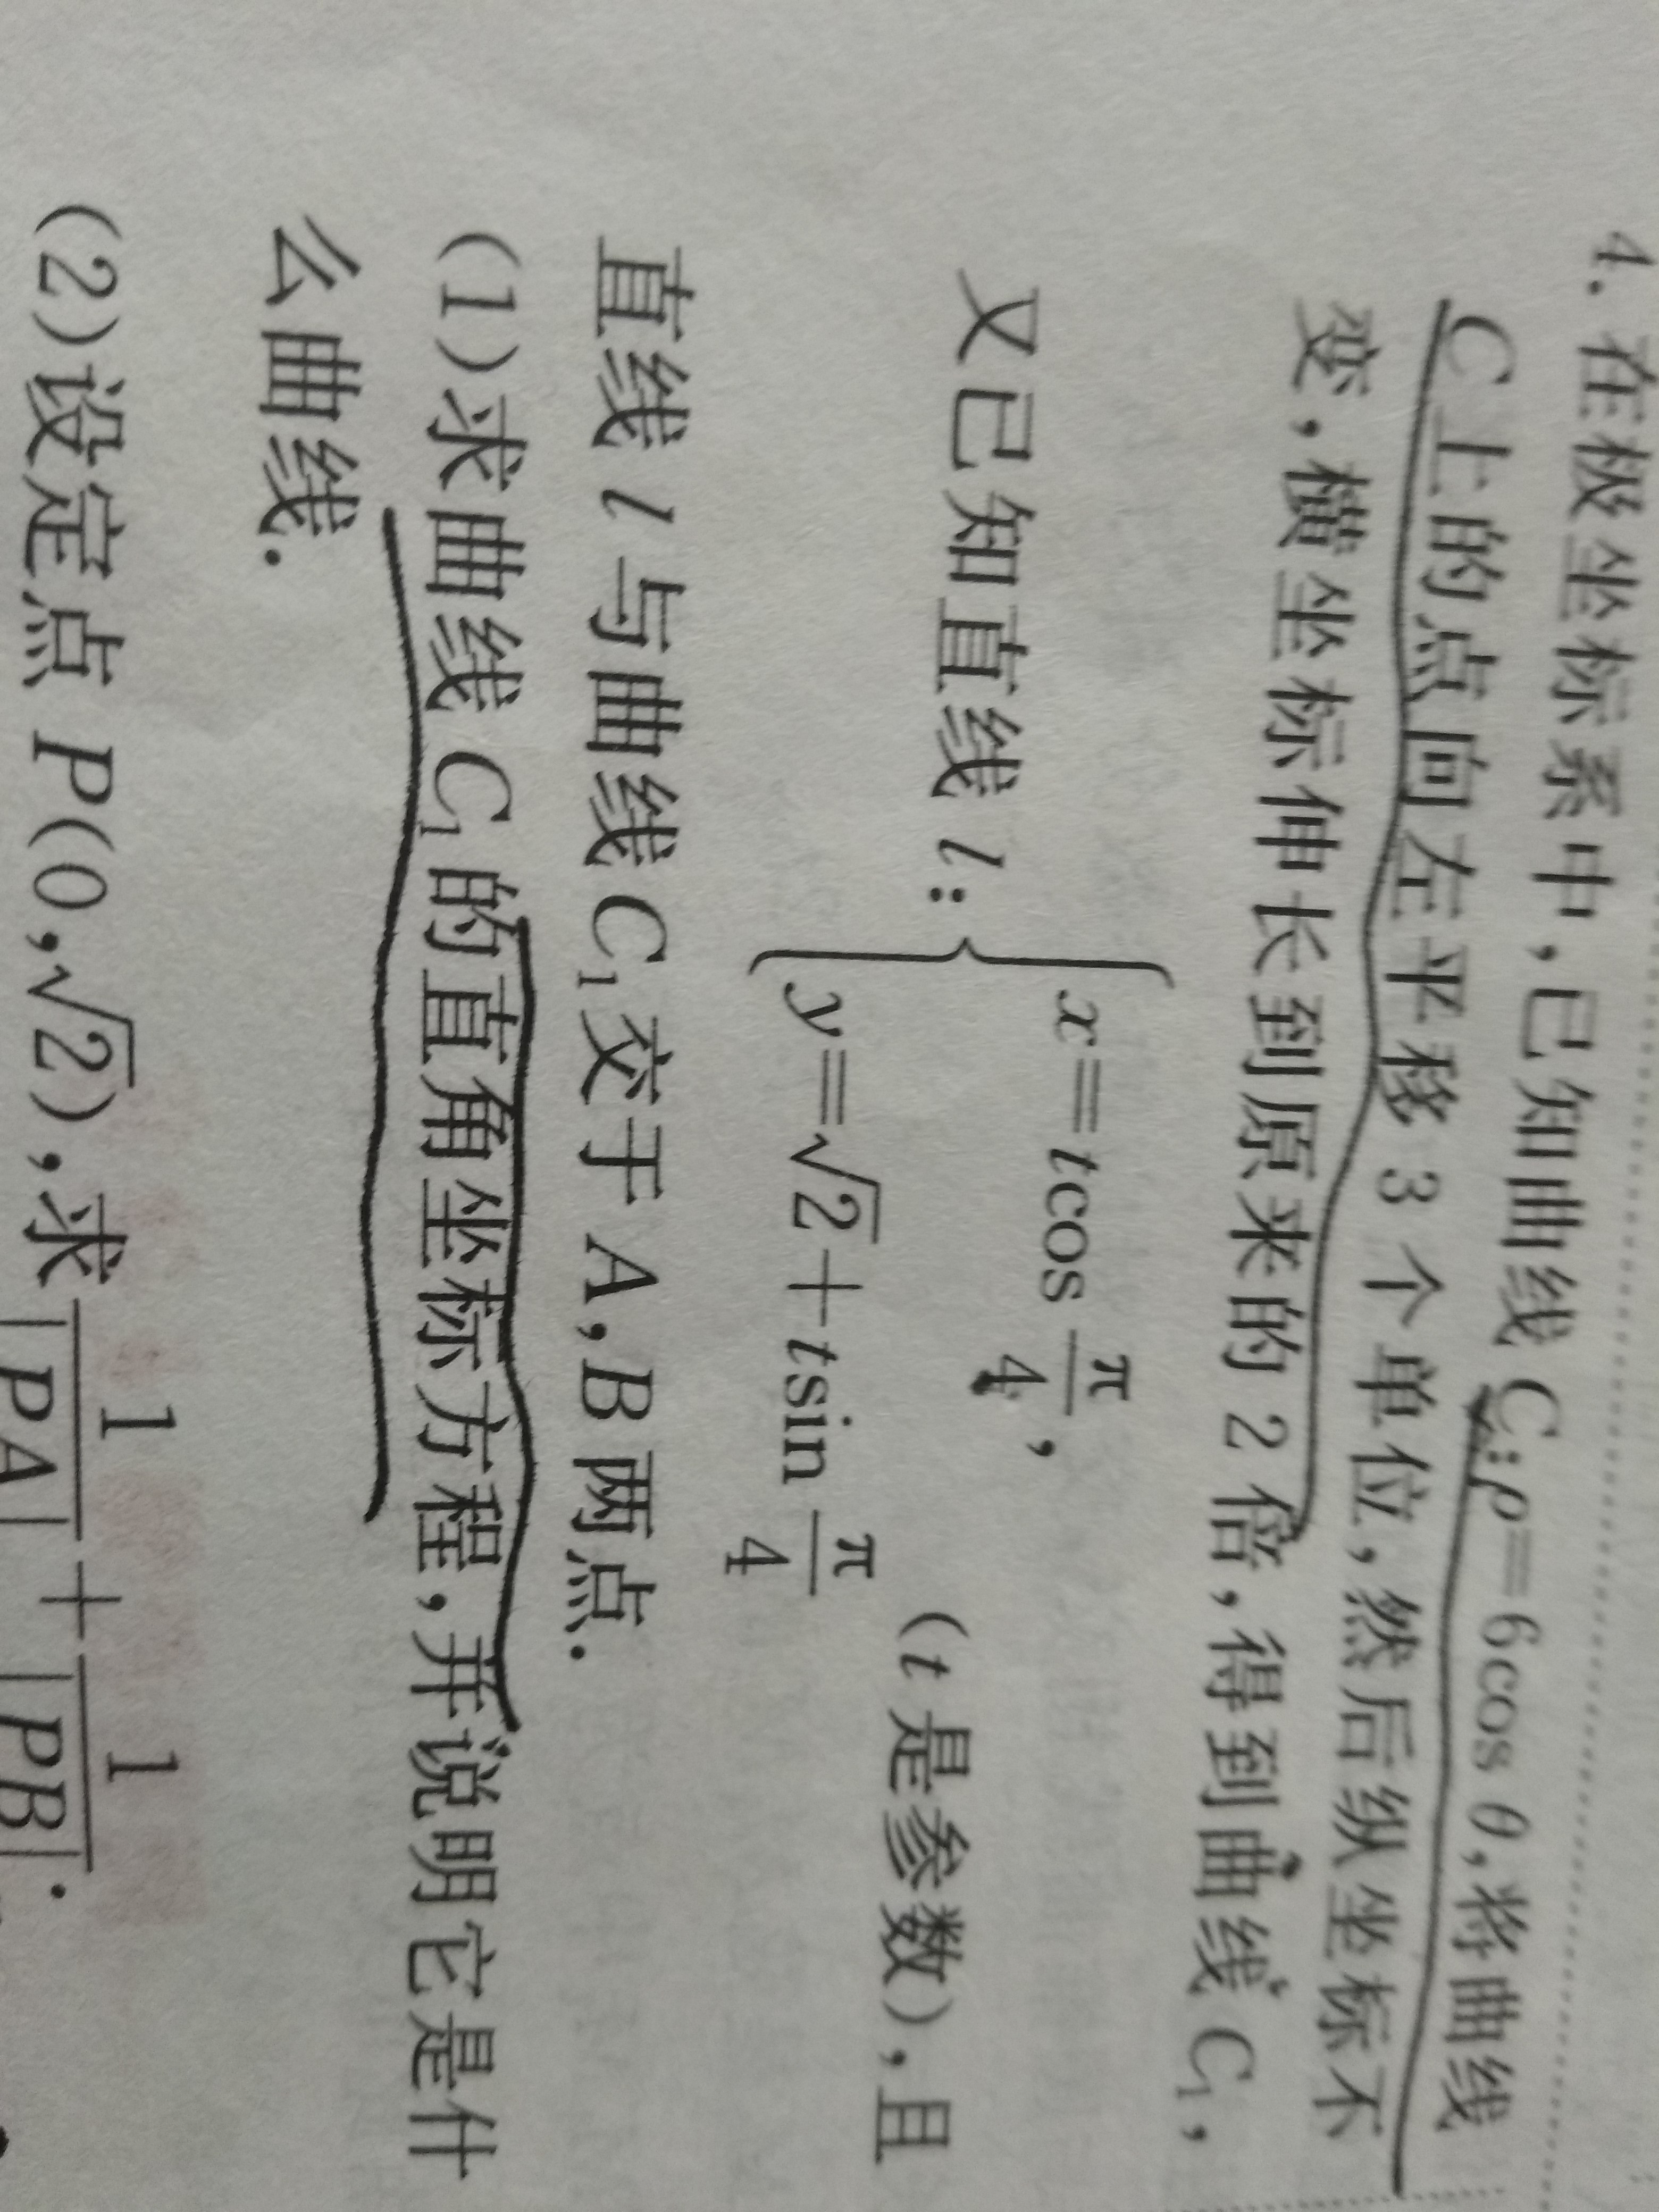 4. 在极坐标系中,已知曲线 C:ρ=6cos θ,将曲线
C 上的点向左平移 3 个单位,然后纵坐标不
变,横坐标伸长到原来的 2 倍,得到曲线 C₁,
又已知直线 l: { x=tcos π/4,
y=√2+tsin π/4 (t 是参数),且
直线 l 与曲线 C₁ 交于 A,B 两点.
(1)求曲线 C₁ 的直角坐标方程,并说明它是什
么曲线.
(2)设定点 P(0,√2),求 1/|PA| + 1/|PB|.